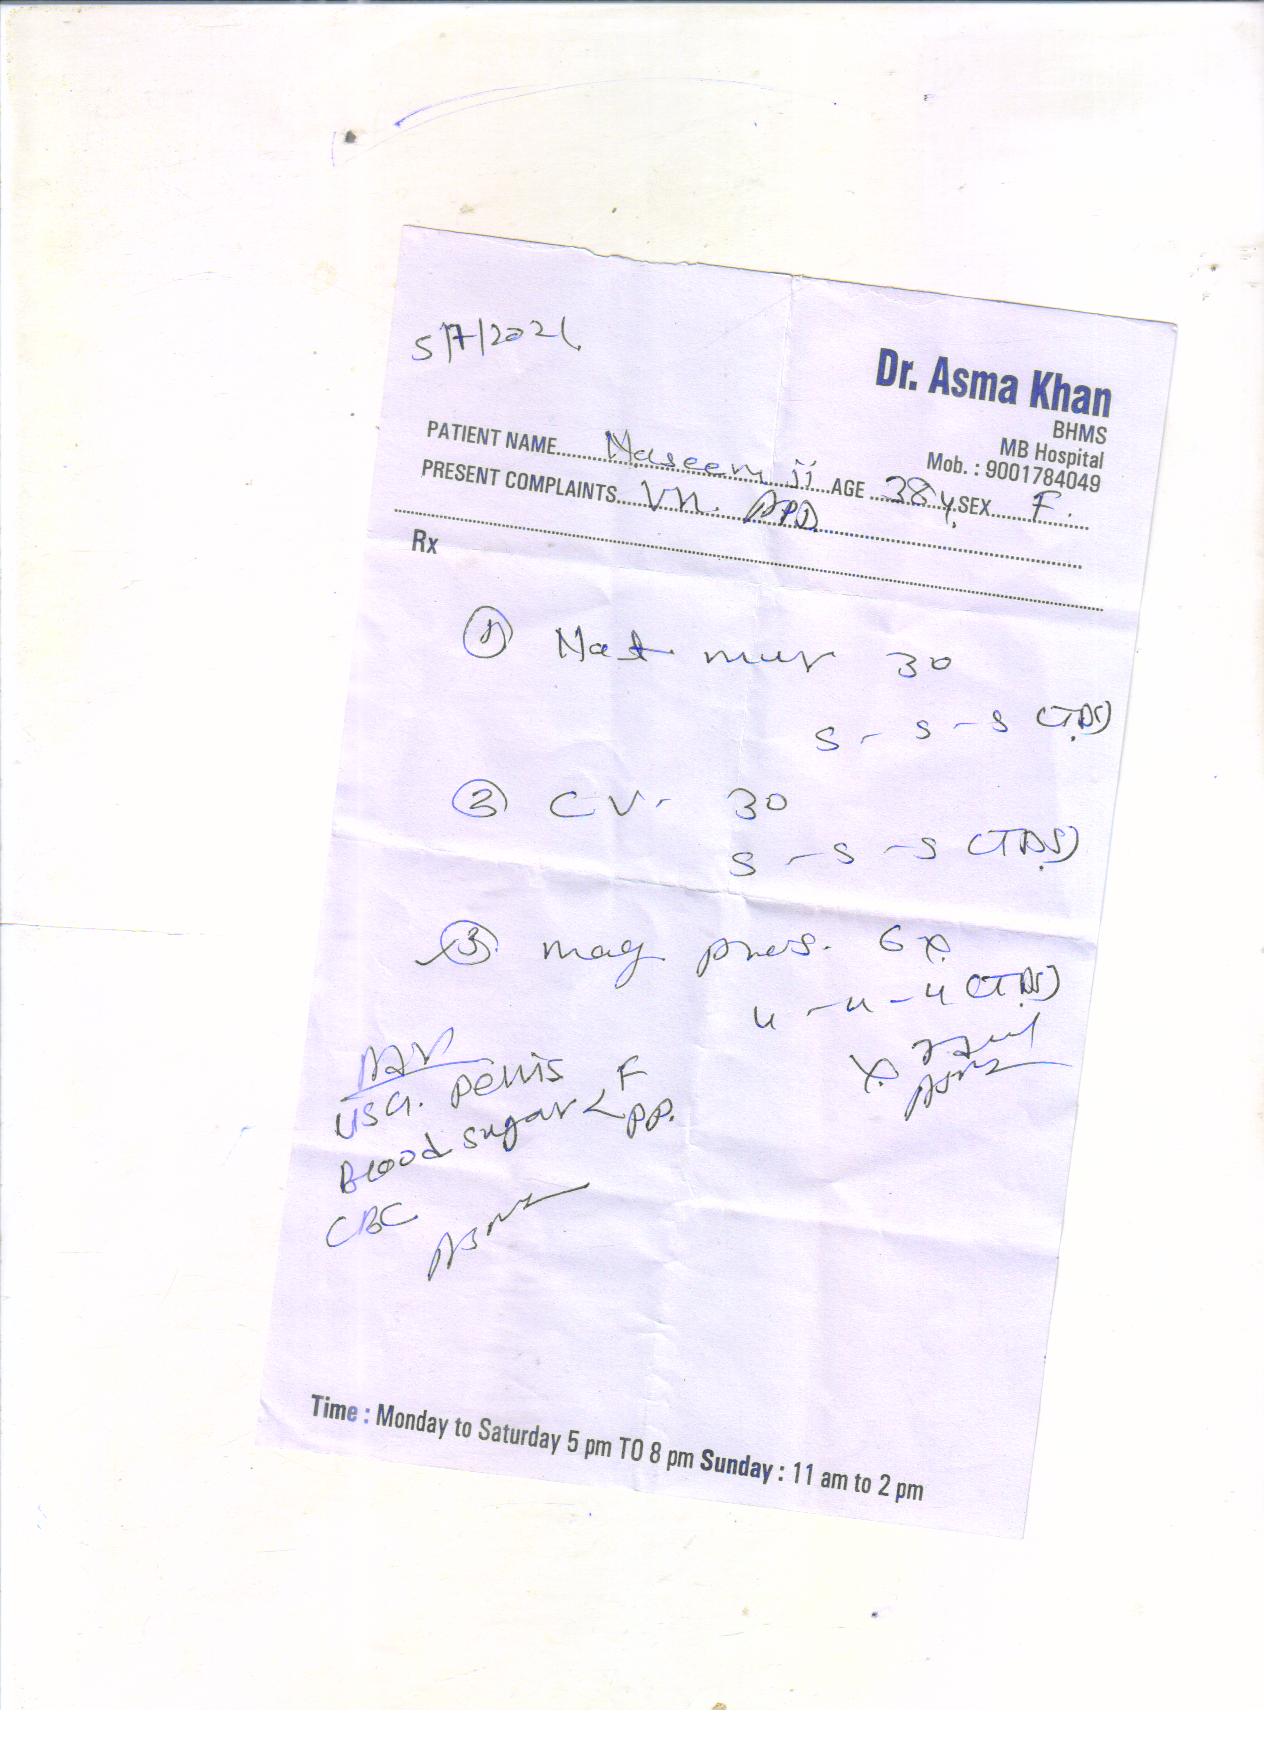 5/7/2021
Dr. Asma Khan
BHMS
MB Hospital
Mob. : 9001784049
PATIENT NAME Naseem ji AGE 38 y. SEX F.
PRESENT COMPLAINTS
Rx
① Nat mur 30
5 - 5 - 5 (TDS)
② CV- 30
5 - 5 - 5 (TDS)
③ mag phos. 6x
4 - 4 - 4 (TDS)
USG. pelvis
Blood sugar < F
PP.
CBC
Time : Monday to Saturday 5 pm TO 8 pm Sunday : 11 am to 2 pm